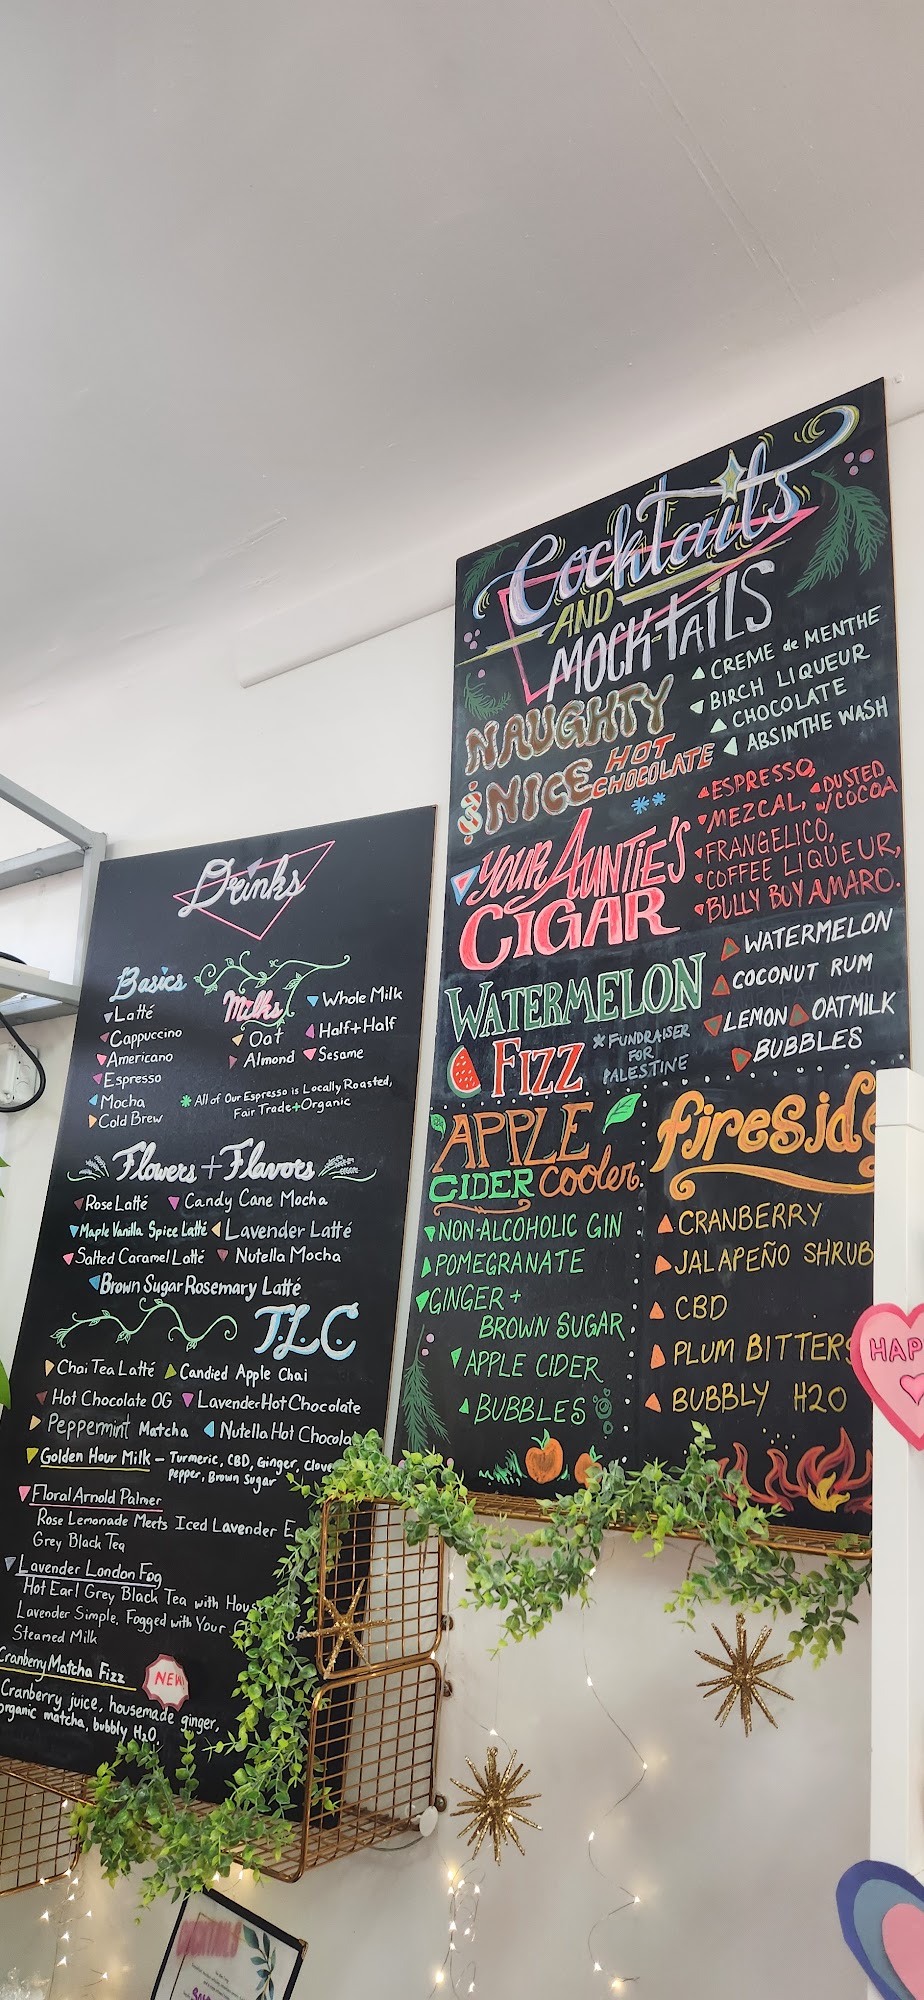 Drinks
Basics
Latté
Cappuccino
Americano
Espresso
Mocha
Cold Brew
Milks
Oat
Almond
Whole Milk
Half+Half
Sesame
* All of Our Espresso is Locally Roasted,
Fair Trade + Organic
Flowers + Flavors
Rose Latté Candy Cane Mocha
Maple Vanilla Spice Latté Lavender Latté
Salted Caramel Latté Nutella Mocha
Brown Sugar Rosemary Latté
TLC
Chai Tea Latté Candied Apple Chai
Hot Chocolate OG Lavender Hot Chocolate
Peppermint Matcha Nutella Hot Chocola
Golden Hour Milk - Turmeric, CBD, Ginger, Clove
Pepper, Brown Sugar
Floral Arnold Palmer
Rose Lemonade Meets Iced Lavender E
Grey Black Tea
Lavender London Fog
Hot Earl Grey Black Tea with Hous
Lavender Simple, Fogged with Your
Steamed Milk
Cranberry Matcha Fizz NEW
Cranberry juice, housemade ginger,
organic matcha, bubbly H2O.
Cocktails
AND
MOCK-TAILS
NAUGHTY
& NICE HOT
CHOCOLATE
CREME de MENTHE
BIRCH LIQUEUR
CHOCOLATE
ABSINTHE WASH
YOUR AUNTIE'S
CIGAR
**
ESPRESSO,
MEZCAL, DUSTED
W/COCOA
FRANGELICO,
COFFEE LIQUEUR,
BULLY BOY AMARO.
WATERMELON
FIZZ
* FUNDRAISER
FOR
PALESTINE
WATERMELON
COCONUT RUM
LEMON OATMILK
BUBBLES
APPLE
CIDER cooler
NON-ALCOHOLIC GIN
POMEGRANATE
GINGER +
BROWN SUGAR
APPLE CIDER
BUBBLES
fireside
CRANBERRY
JALAPEÑO SHRUB
CBD
PLUM BITTERS
BUBBLY H2O
HAP
COCKTAILS